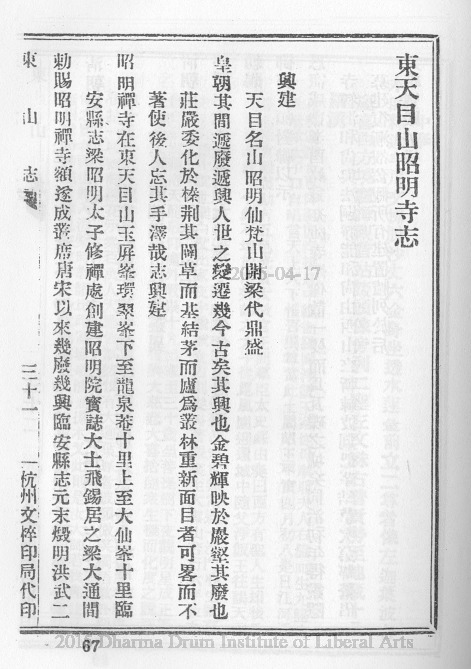 東天目山昭明寺志
興建
天目名山昭明仙梵山開梁代鼎盛
皇朝其間遞廢遞興人世之變遷幾今古矣其興也金碧輝映於巖壑其廢也
莊嚴委化於榛荆其闢草而基結茅而廬爲叢林重新面目者可畧而不
著使後人忘其手澤哉志興建
昭明禪寺在東天目山玉屏峯環翠峯下至龍泉菴十里上至大仙峯十里臨
安縣志梁昭明太子修禪處創建昭明院寳誌大士飛錫居之梁大通間
勅賜昭明禪寺額遂成叢席唐宋以來幾廢幾興臨安縣志元末燬明洪武二
東山志
三十一
杭州文粹印局代印
2015-04-17
67
Dharma Drum Institute of Liberal Arts